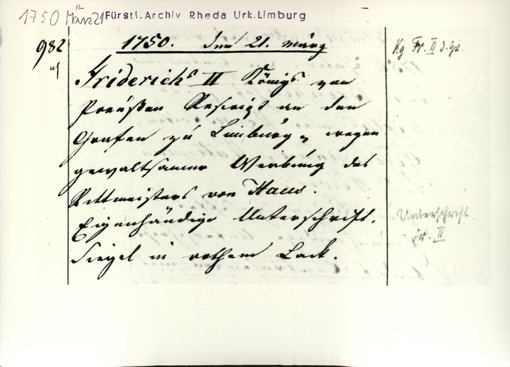 1750 März 21 Fürstl.Archiv Rheda Urk.Limburg
982
1750. den 21. März
Kg Fr. II d. Gr.
Friderichs II Königs von
Preußen Rescript an den
Grafen zu Limburg, wegen
gewaltsamer Werbung des
Rittmeisters von Haus.
Eigenhändige Unterschrift.
Unterschrift
Fr. II
Siegel in rothem Lack.